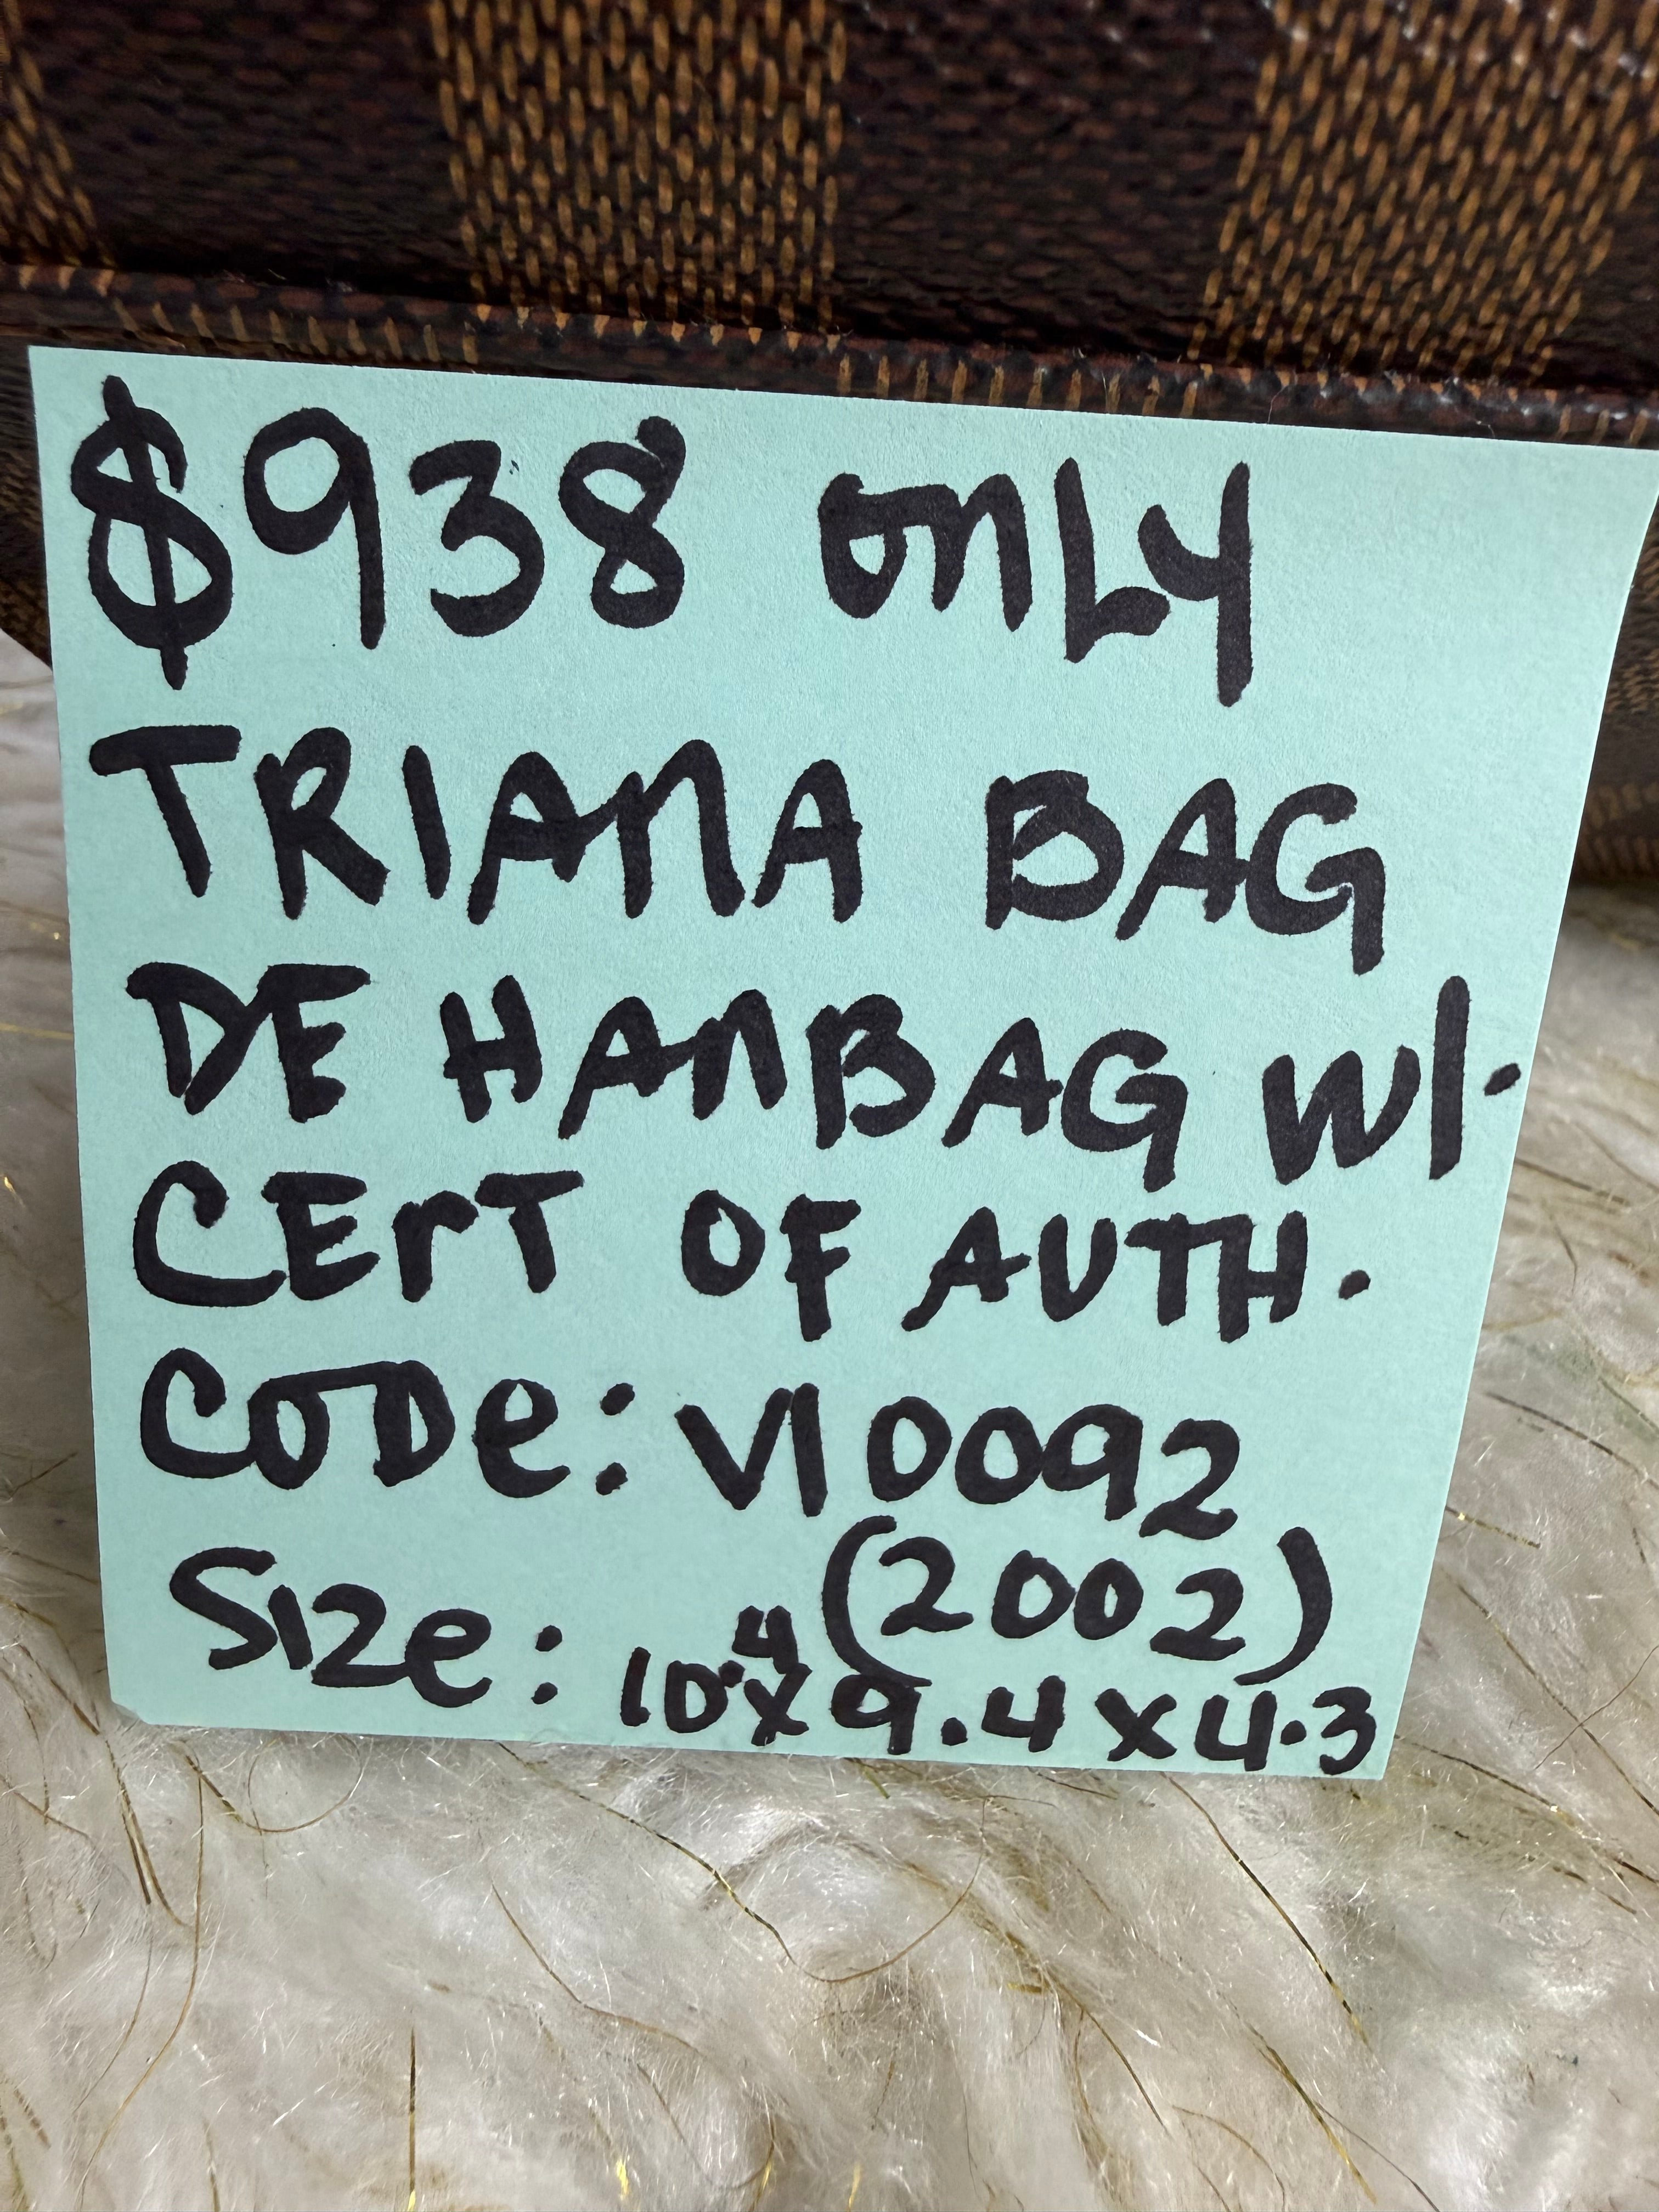 $938 only
TRIANA BAG
DE HANBAG W/.
CERT OF AUTH.
CODE: VI0092
(2002)
SIZE: 10.4 x 9.4 x 4.3